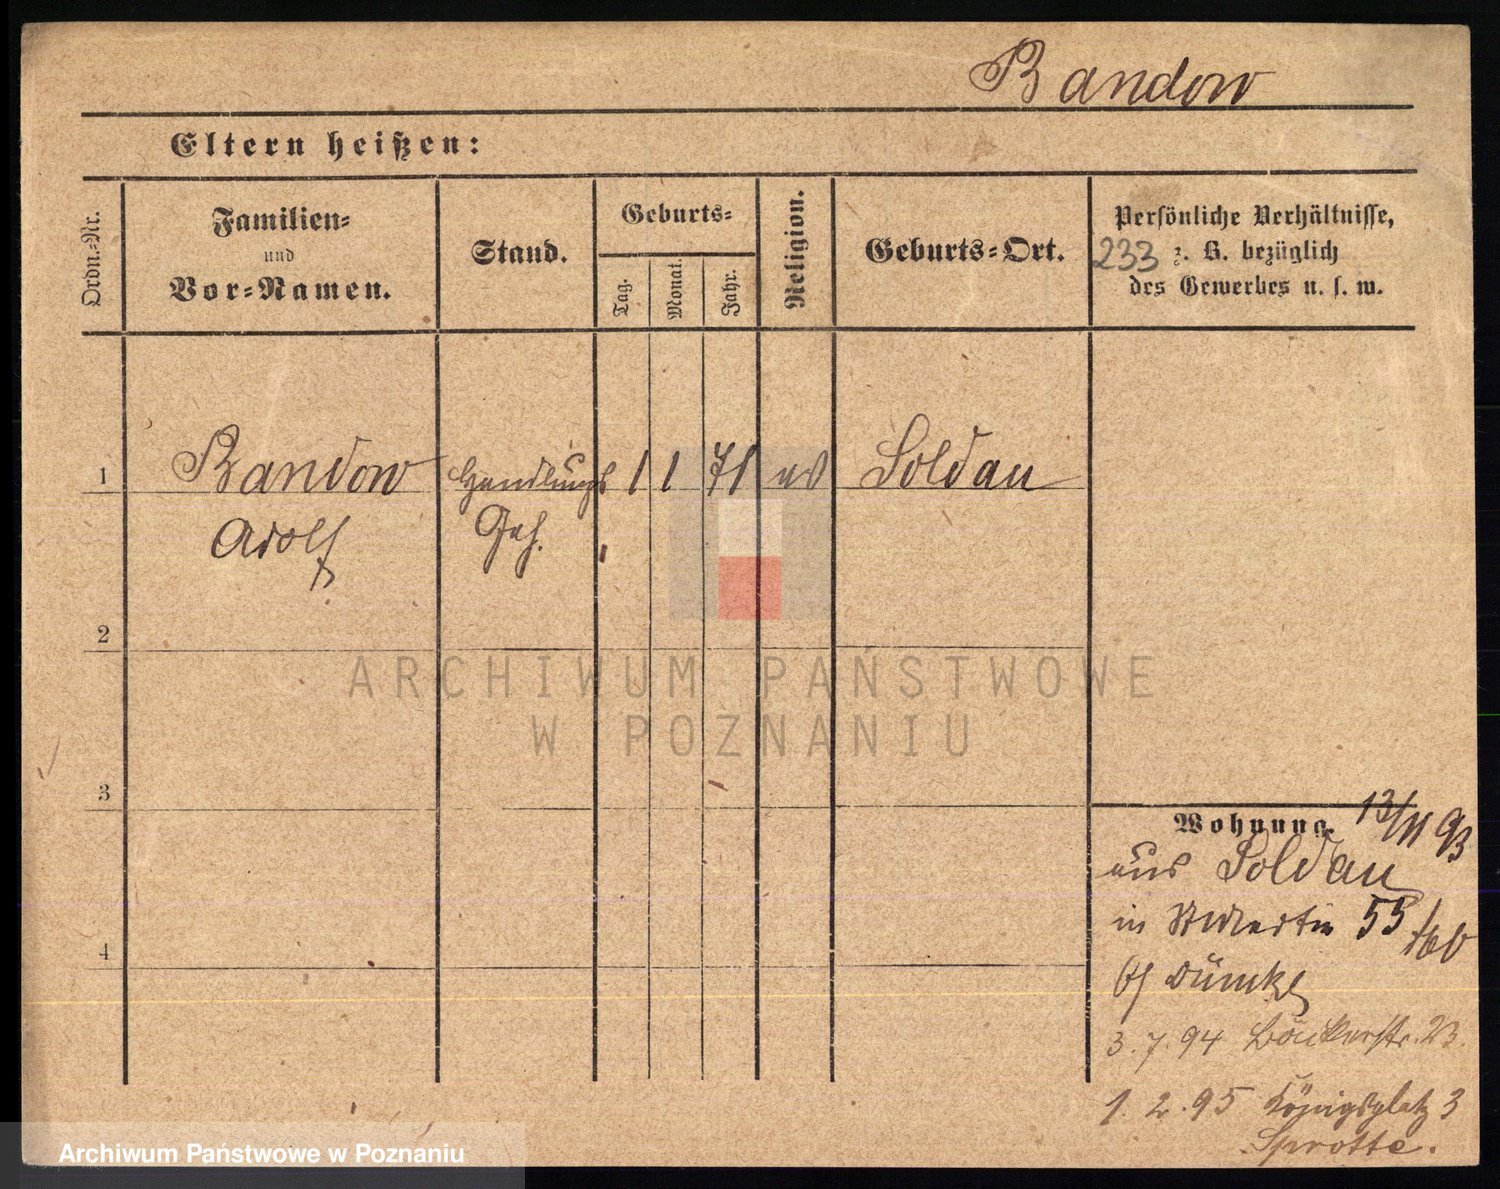 Bandow
Eltern heißen:
Ordn.-Nr.
Familien-
und
Vor-Namen.
Stand.
Geburts-
Tag.
Monat.
Jahr.
Religion.
Geburts-Ort.
Persönliche Verhältnisse,
233 z. B. bezüglich
des Gewerbes u. s. w.
1 Bandow Handlungs 1 1 71 Soldau
Adolf Geh.
2
ARCHIWUM PAŃSTWOWE
W POZNANIU
3
Wohnung. 13/11 93
aus Soldau
in St Martin 55
4
Dümke
3. 7. 94 23.
1. 2. 95 Königsplatz 3
Sprotte.
Archiwum Państwowe w Poznaniu